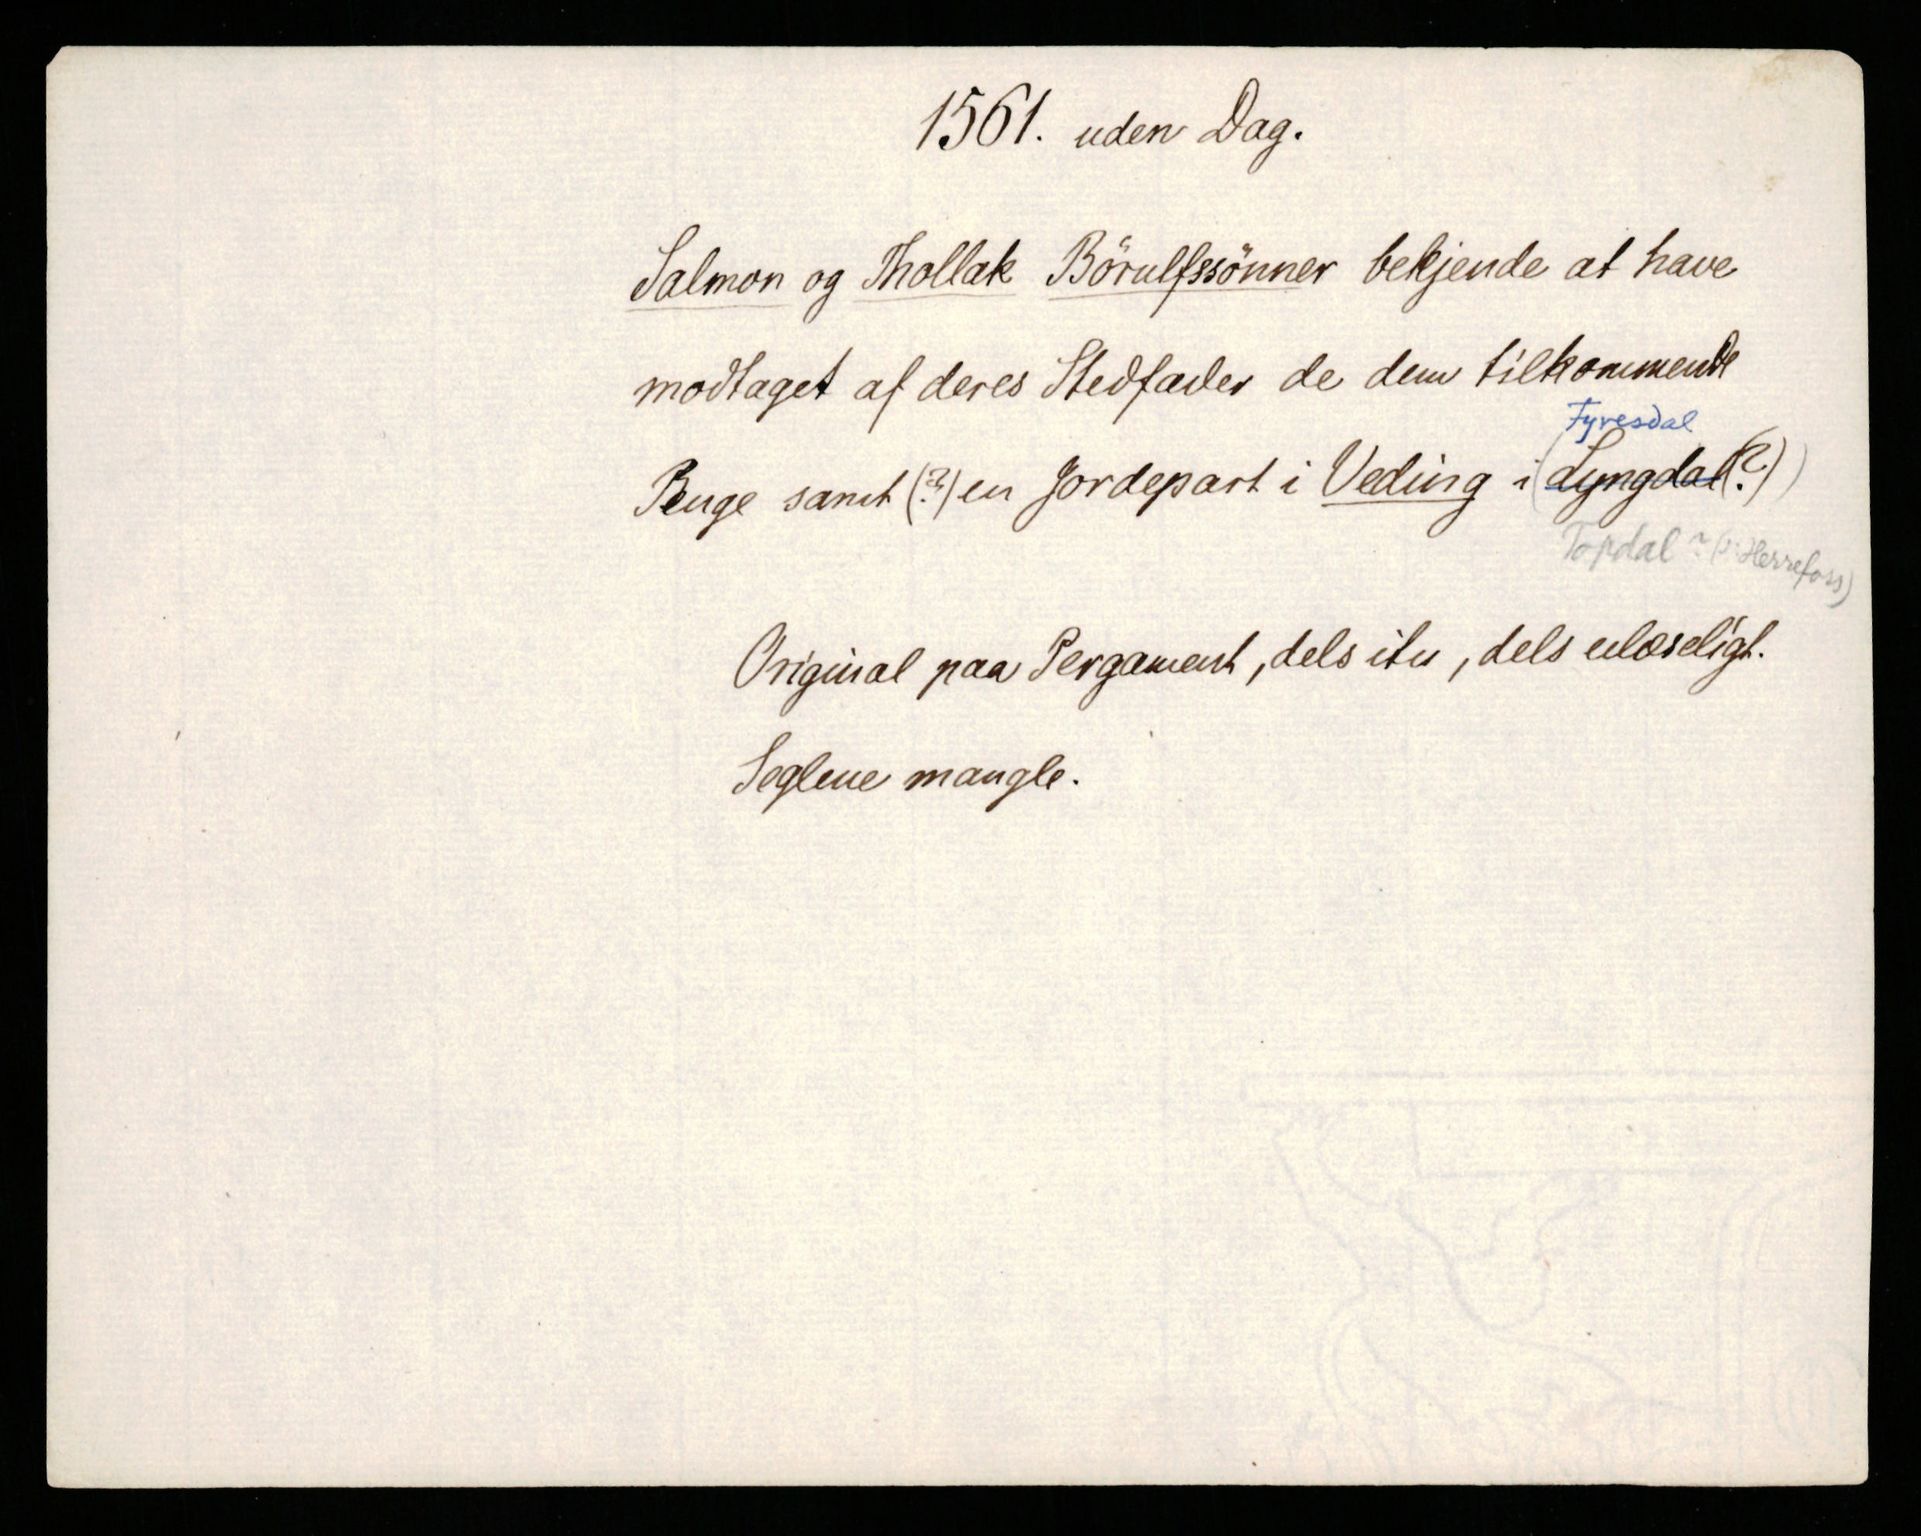 1561. uden Dag.
Salmon og Thollak Börulfssönner bekjende at have
modtaget af deres Stedfader de dem tilkommende
Fyresdal
Penge samt (?) en Jordepart i Veding i (Lyngdal (?))
Topdal ? (ɔ: Herrefoss)
Original paa Pergament, dels itu, dels ulæseligt.
Seglene mangle.